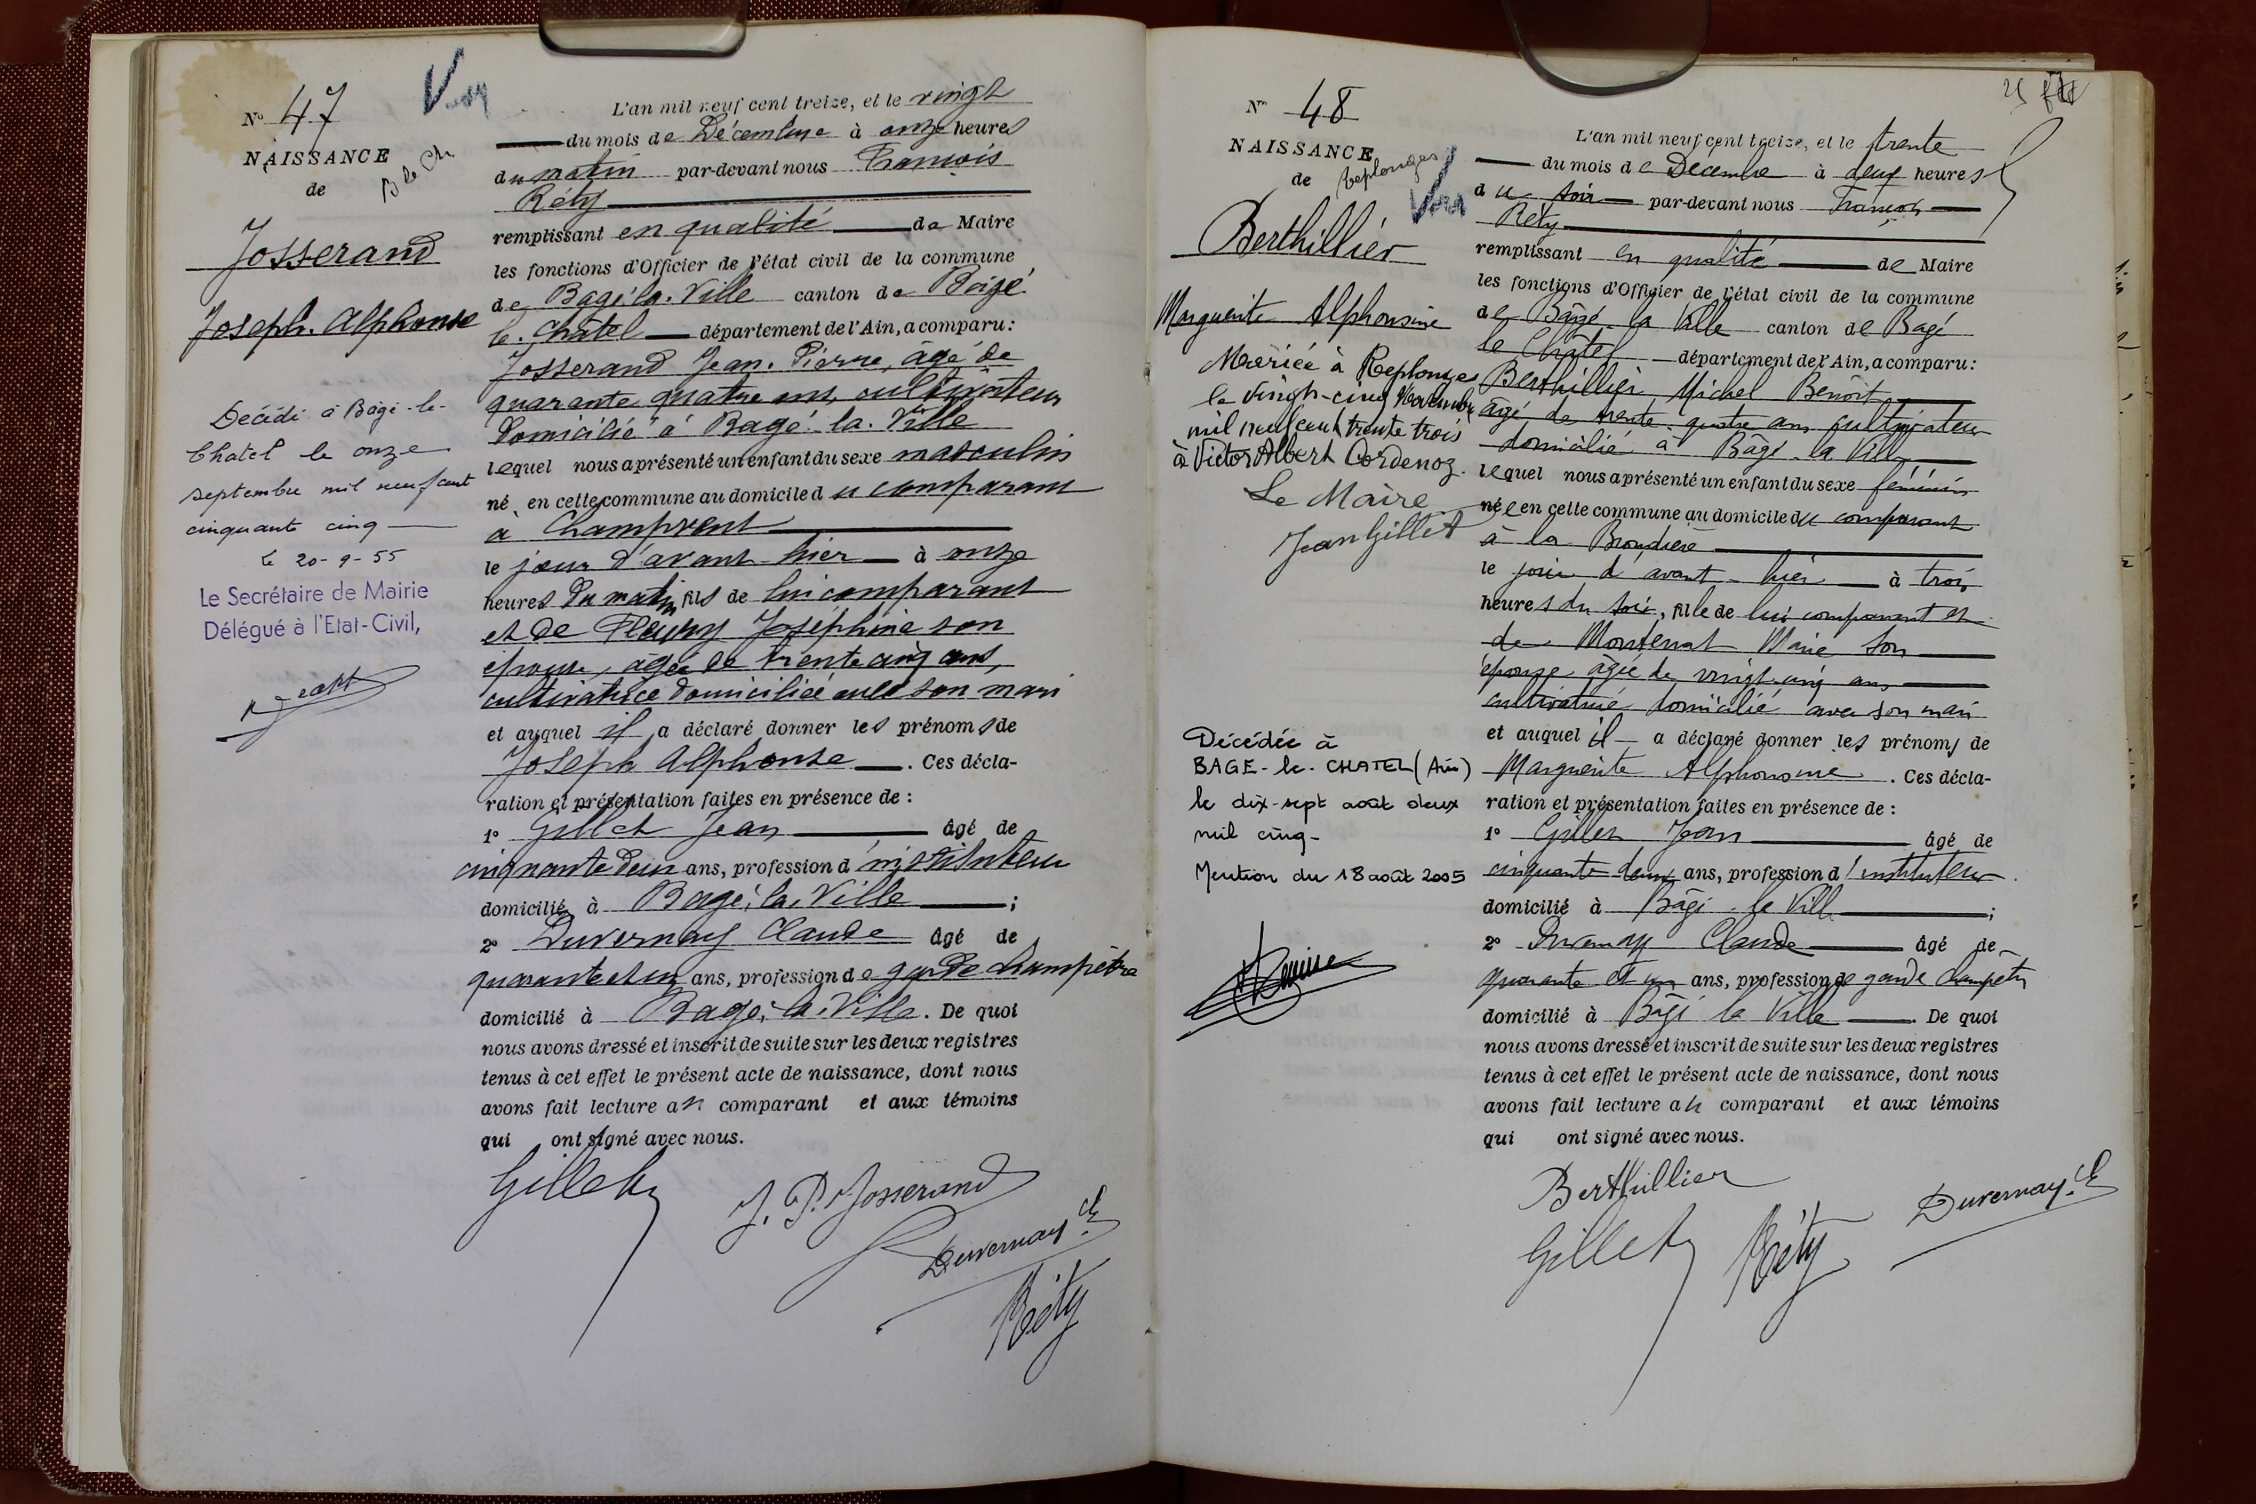 N° 47
NAISSANCE
de
B le Ch
Josserand
Joseph. Alphonse
Décédé à Bâgé-le-
Chatel le onze
septembre mil neuf cent
cinquante cinq
le 20-9-55
Le Secrétaire de Mairie
Délégué à l'Etat-Civil,
L'an mil neuf cent treize, et le vingt
du mois de Décembre à onze heures
du matin par-devant nous François
Réty
remplissant en qualité de Maire
les fonctions d'Officier de l'état civil de la commune
de Bagé-la-Ville canton de Bagé
le-Châtel département de l'Ain, a comparu :
Josserand Jean-Pierre, âgé de
quarante quatre ans, cultivateur
domicilié à Bagé-la-Ville
lequel nous a présenté un enfant du sexe masculin
né en cette commune au domicile du comparant
à Champvent
le jour d'avant-hier à onze
heures du matin, fils de lui comparant
et de Fleury Joséphine son
épouse, âgée de trente cinq ans,
cultivatrice domiciliée avec son mari
et auquel il a déclaré donner les prénoms de
Joseph Alphonse . Ces décla-
ration et présentation faites en présence de :
1° Gillet Jean âgé de
cinquante deux ans, profession d'instituteur
domicilié à Bagé-la-Ville ;
2° Duvernay Claude âgé de
quarante et un ans, profession de garde champêtre
domicilié à Bagé-la-Ville. De quoi
nous avons dressé et inscrit de suite sur les deux registres
tenus à cet effet le présent acte de naissance, dont nous
avons fait lecture au comparant et aux témoins
qui ont signé avec nous.
Gillet
J. P. Josserand
Duvernay Cl
Réty
N° 48
NAISSANCE
de Replonges
Berthillier
Marguerite Alphonsine
Mariée à Replonges
le vingt-cinq Novembre
mil neuf cent trente trois
à Victor Albert Cordenoz.
Le Maire
Jean Gillet
Décédée à
BAGE-le-CHATEL (Ain)
le dix-sept août deux
mil cinq-
Mention du 18 août 2005
L'an mil neuf cent treize, et le trente
du mois de Décembre à deux heures
du soir par-devant nous François
Réty
remplissant en qualité de Maire
les fonctions d'Officier de l'état civil de la commune
de Bâgé-la-Ville canton de Bagé
le Châtel département de l'Ain, a comparu :
Berthillier Michel Benoit
âgé de trente-quatre ans cultivateur
domicilié à Bâgé-la-Ville
lequel nous a présenté un enfant du sexe féminin
née en cette commune au domicile du comparant
à la
le jour d'avant-hier à trois
heures du soir, fille de lui comparant et
de Marie son
épouse âgée de vingt-cinq ans
cultivatrice domicilié avec son mari
et auquel il a déclaré donner les prénoms de
Marguerite Alphonsine . Ces décla-
ration et présentation faites en présence de :
1° Gillet Jean âgé de
cinquante-deux ans, profession d'instituteur
domicilié à Bâgé-la Ville ;
2° Duvernay Claude âgé de
quarante et un ans, profession de garde champêtre
domicilié à Bâgé la Ville . De quoi
nous avons dressé et inscrit de suite sur les deux registres
tenus à cet effet le présent acte de naissance, dont nous
avons fait lecture au comparant et aux témoins
qui ont signé avec nous.
Berthillier
Duvernay. Cl
Gillet
Réty